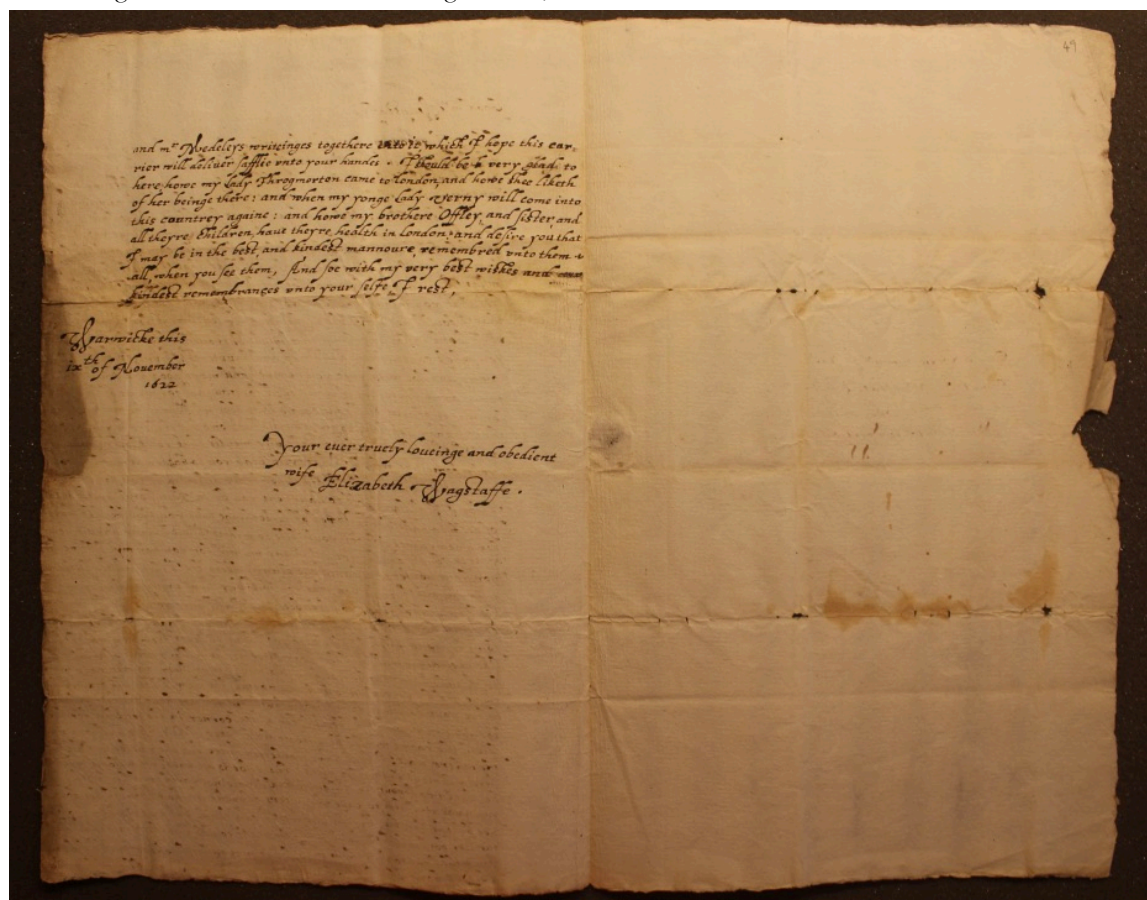 49
and mr Medeleys writeinges togethere into it, which I hope this car,
rier will deliuer safflie vnto your handes. I should be very glad to
here howe my Lady Throgmorton came to London, and howe shee liketh
of her beinge there: and when my yonge Lady Verny will come into
this countrey againe: and howe my brothere Offley, and sister, and
all theyre Children, haue theyre health in London, and desire you that
I may be in the best, and kindest mannoure, remembred vnto them
all, when you see them, And soe with my very best wishes and
kindest remembrances vnto your selfe I rest,
Warwicke this
ixth of Nouember
1622
Your euer truely loueinge and obedient
wife Elizabeth Wagstaffe.